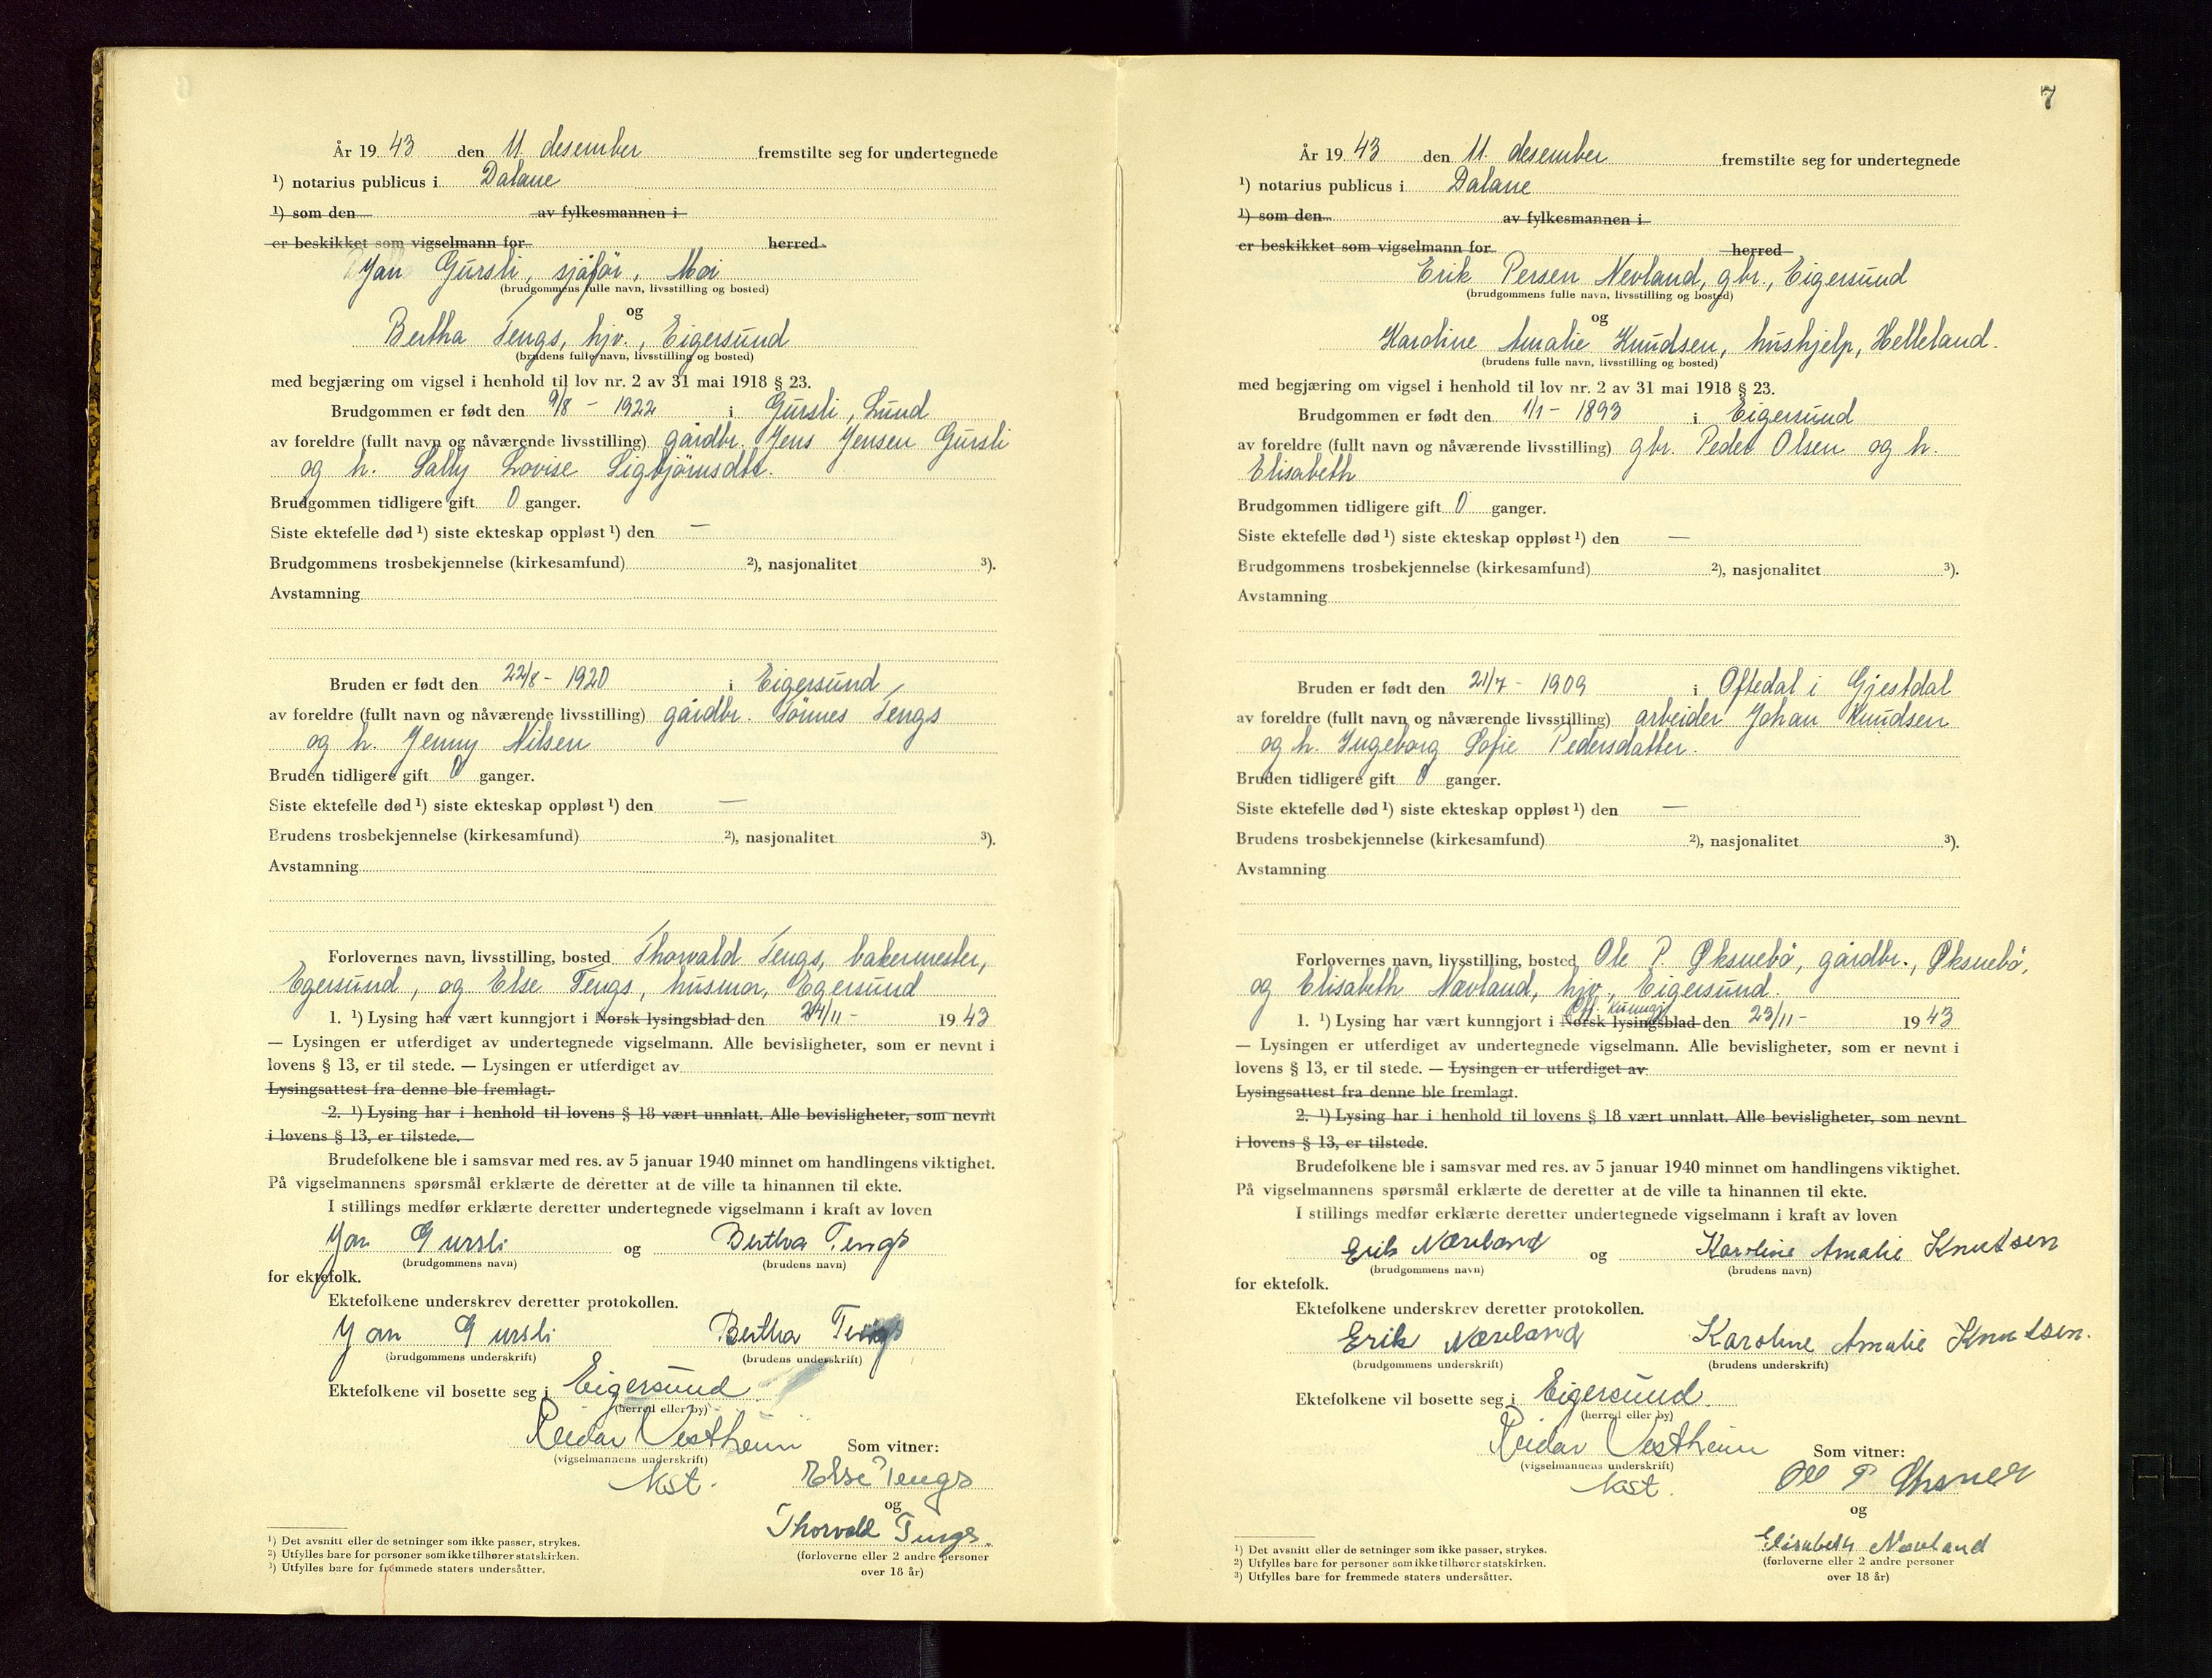 År 19 43 den 11. desember fremstilte seg for undertegnede
¹) notarius publicus i Dalane
¹) som den av fylkesmannen i
er beskikket som vigselmann for herred
Jan Gursli, sjåfør, Moi
(brudgommens fulle navn, livsstilling og bosted)
og
Bertha Tengs, hjv., Eigersund
(brudens fulle navn, livsstilling og bosted)
med begjæring om vigsel i henhold til lov nr. 2 av 31 mai 1918 § 23.
Brudgommen er født den 9/8 - 1922 i Gursli, Lund
av foreldre (fullt navn og nåværende livsstilling) gårdbr. Jens Jensen Gursli
og h. Sally Lovise Sigbjörnsdtr.
Brudgommen tidligere gift 0 ganger.
Siste ektefelle død ¹) siste ekteskap oppløst ¹) den —
Brudgommens trosbekjennelse (kirkesamfund) ²), nasjonalitet ³).
Avstamning
Bruden er født den 22/8 - 1920 i Eigersund
av foreldre (fullt navn og nåværende livsstilling) gårdbr. Tönnes Tengs
og h. Jenny Nilsen
Bruden tidligere gift 0 ganger.
Siste ektefelle død ¹) siste ekteskap oppløst ¹) den —
Brudens trosbekjennelse (kirkesamfund) ²), nasjonalitet ³).
Avstamning
Forlovernes navn, livsstilling, bosted Thorvald Tengs, bakermester,
Egersund, og Else Tengs, husmor, Egersund
1. ¹) Lysing har vært kunngjort i Norsk lysingsblad den 24/11 - 19 43
— Lysingen er utferdiget av undertegnede vigselmann. Alle bevisligheter, som er nevnt i
lovens § 13, er til stede. — Lysingen er utferdiget av
Lysingsattest fra denne ble fremlagt.
2. ¹) Lysing har i henhold til lovens § 18 vært unnlatt. Alle bevisligheter, som nevnt
i lovens § 13, er tilstede.
Brudefolkene ble i samsvar med res. av 5 januar 1940 minnet om handlingens viktighet.
På vigselmannens spørsmål erklærte de deretter at de ville ta hinannen til ekte.
I stillings medfør erklærte deretter undertegnede vigselmann i kraft av loven
Jan Gursli og Bertha Tengs
(brudgommens navn) (brudens navn)
for ektefolk.
Ektefolkene underskrev deretter protokollen.
Jan Gursli Bertha Tengs
(brudgommens underskrift) (brudens underskrift)
Ektefolkene vil bosette seg i Eigersund
(herred eller by)
Reidar Vestheim Som vitner:
(vigselmannens underskrift)
kst. Else Tengs
og
Thorvald Tengs.
(forloverne eller 2 andre personer
over 18 år)
¹) Det avsnitt eller de setninger som ikke passer, strykes.
²) Utfylles bare for personer som ikke tilhører statskirken.
³) Utfylles bare for fremmede staters undersåtter.
7
År 19 43 den 11. desember fremstilte seg for undertegnede
¹) notarius publicus i Dalane
¹) som den av fylkesmannen i
er beskikket som vigselmann for herred
Erik Persen Nevland, gbr., Eigersund
(brudgommens fulle navn, livsstilling og bosted)
og
Karoline Amalie Knudsen, hushjelp, Helleland.
(brudens fulle navn, livsstilling og bosted)
med begjæring om vigsel i henhold til lov nr. 2 av 31 mai 1918 § 23.
Brudgommen er født den 1/1 - 1893 i Eigersund
av foreldre (fullt navn og nåværende livsstilling) gbr. Peder Olsen og h.
Elisabeth
Brudgommen tidligere gift 0 ganger.
Siste ektefelle død ¹) siste ekteskap oppløst ¹) den —
Brudgommens trosbekjennelse (kirkesamfund) ²), nasjonalitet ³).
Avstamning
Bruden er født den 21/7 - 1909 i Oftedal i Gjestdal
av foreldre (fullt navn og nåværende livsstilling) arbeider Johan Knudsen
og h. Ingeborg Sofie Pedersdatter.
Bruden tidligere gift 0 ganger.
Siste ektefelle død ¹) siste ekteskap oppløst ¹) den —
Brudens trosbekjennelse (kirkesamfund) ²), nasjonalitet ³).
Avstamning
Forlovernes navn, livsstilling, bosted Ole P. Øksnebö, gårdbr., Øksnebö,
og Elisabeth Nævland, hjv., Eigersund.
Off. Kunngj.
1. ¹) Lysing har vært kunngjort i Norsk lysingsblad den 23/11 - 19 43
— Lysingen er utferdiget av undertegnede vigselmann. Alle bevisligheter, som er nevnt i
lovens § 13, er til stede. — Lysingen er utferdiget av
Lysingsattest fra denne ble fremlagt.
2. ¹) Lysing har i henhold til lovens § 18 vært unnlatt. Alle bevisligheter, som nevnt
i lovens § 13, er tilstede.
Brudefolkene ble i samsvar med res. av 5 januar 1940 minnet om handlingens viktighet.
På vigselmannens spørsmål erklærte de deretter at de ville ta hinannen til ekte.
I stillings medfør erklærte deretter undertegnede vigselmann i kraft av loven
Erik Nævland og Karoline Amalie Knutsen
(brudgommens navn) (brudens navn)
for ektefolk.
Ektefolkene underskrev deretter protokollen.
Erik Nævland Karoline Amalie Knutsen.
(brudgommens underskrift) (brudens underskrift)
Ektefolkene vil bosette seg i Eigersund.
(herred eller by)
Reidar Vestheim Som vitner:
(vigselmannens underskrift)
kst. P
og
Elisabeth Nævland
(forloverne eller 2 andre personer
over 18 år)
¹) Det avsnitt eller de setninger som ikke passer, strykes.
²) Utfylles bare for personer som ikke tilhører statskirken.
³) Utfylles bare for fremmede staters undersåtter.